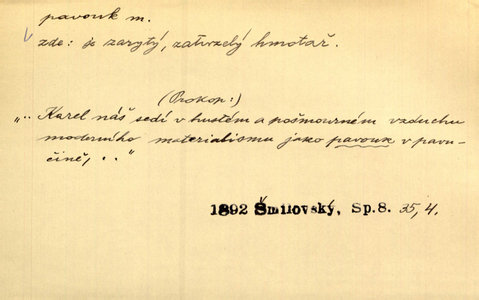 pavouk m.
zde: je zarytý, zatvrzelý hmotař.
(Prokop:)
„.. Karel náš sedí v hustém a pošmourném vzduchu
moderního materialismu jako pavouk v pavu-
čině, . . "
1892 Šmilovský, Sp.8. 35,4.